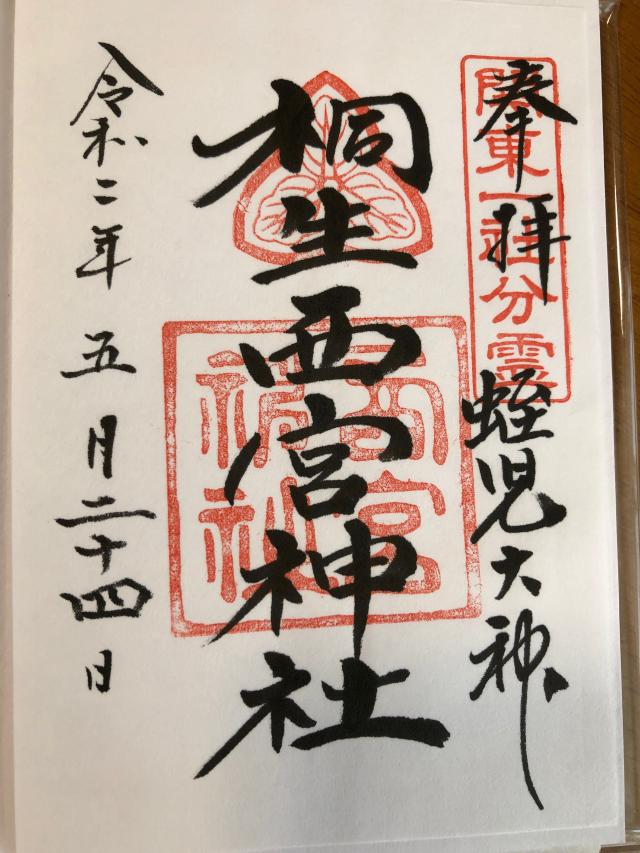 奉拝
関東一社分霊
蛭児大神
桐生西宮神社
西宮神社
令和二年五月二十四日